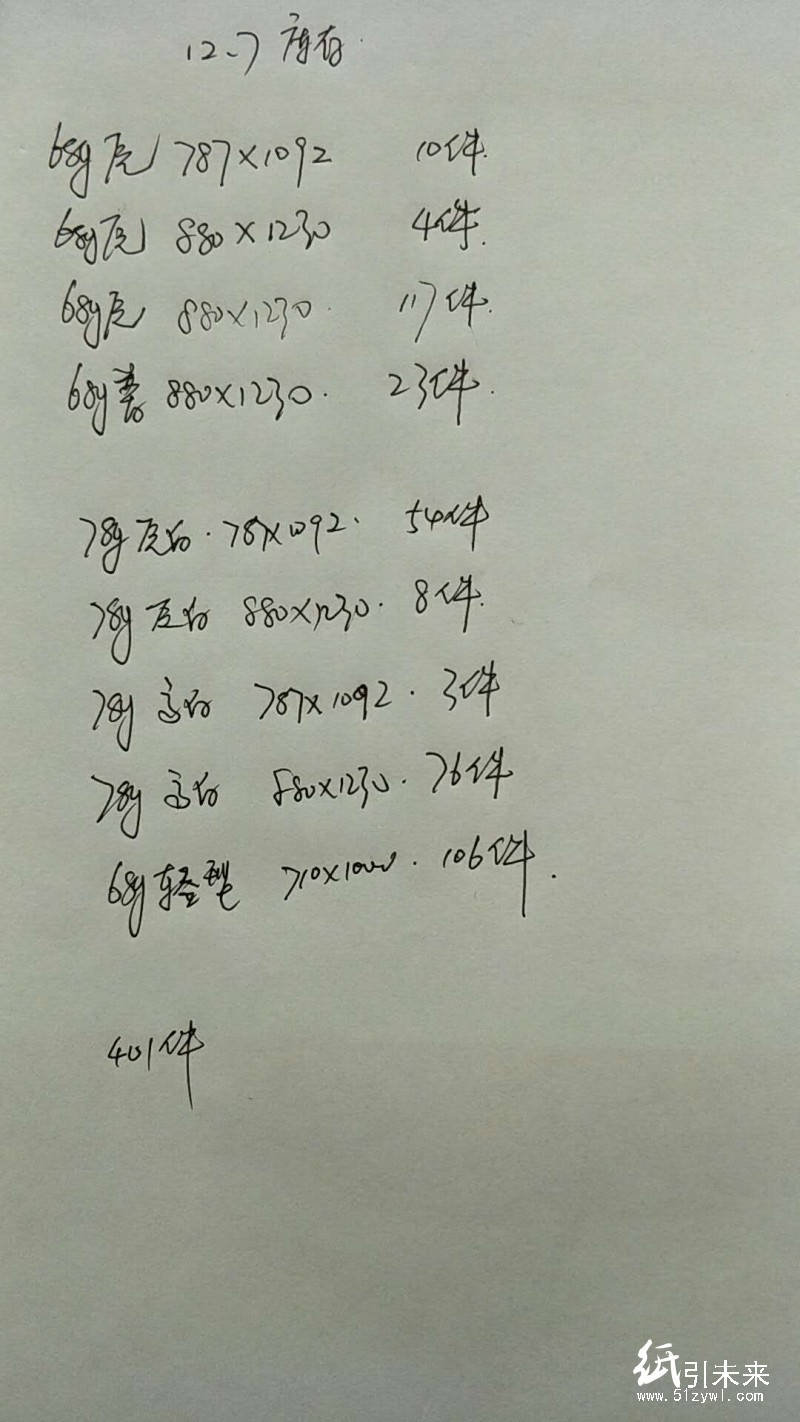 12、7 库存.
68g 787×1092 10件.
68g 880×1230 4件.
68g 880×1230. 117件.
68g 880×1230. 23件.
78g 白. 787×1092. 54件
78g 白 880×1230. 8件.
78g 高白 787×1092. 3件
78g 高白 880×1230. 76件
68g 轻型 710×1000. 106件.
401件
纸引未来
www.51zywl.com